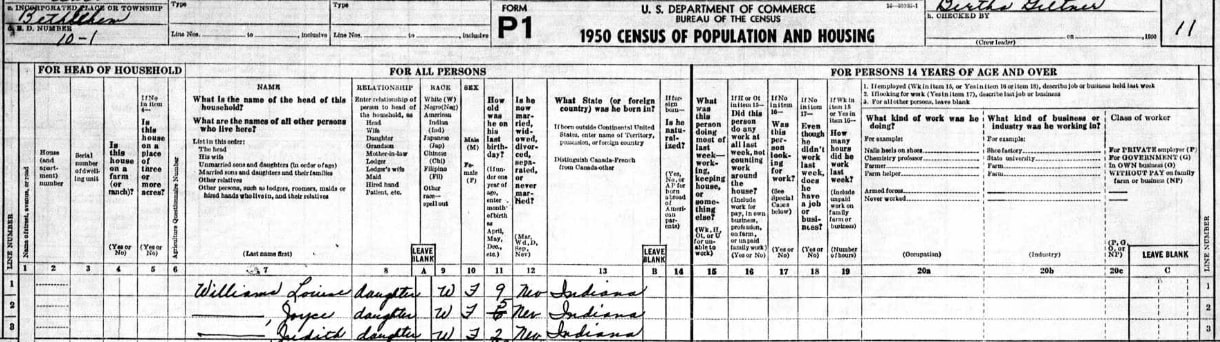 a. INCORPORATED PLACE OR TOWNSHIP
Bethlehem
E. D. NUMBER
10-1
Type
Line Nos. to , inclusive
Type
Line Nos. to , inclusive
FORM
P1
U. S. DEPARTMENT OF COMMERCE
BUREAU OF THE CENSUS
1950 CENSUS OF POPULATION AND HOUSING
Bertha Giltner
h. CHECKED BY
on , 1950
(Crew leader)
11
FOR HEAD OF HOUSEHOLD
FOR ALL PERSONS
FOR PERSONS 14 YEARS OF AGE AND OVER
LINE NUMBER
Name of street, avenue, or road
House (and apartment) number
Serial number of dwelling unit
Is this house on a farm (or ranch)?
(Yes or No)
If No in item 4—
Is this house on a place of three or more acres?
(Yes or No)
Agriculture Questionnaire Number
NAME
What is the name of the head of this household?
What are the names of all other persons who live here?
List in this order:
The head
His wife
Unmarried sons and daughters (in order of age)
Married sons and daughters and their families
Other relatives
Other persons, such as lodgers, roomers, maids or hired hands who live in, and their relatives
(Last name first)
RELATIONSHIP
Enter relationship of person to head of the household, as
Head
Wife
Daughter
Grandson
Mother-in-law
Lodger
Lodger's wife
Maid
Hired hand
Patient, etc.
LEAVE BLANK
RACE
White (W)
Negro (Neg)
American Indian (Ind)
Japanese (Jap)
Chinese (Chi)
Filipino (Fil)
Other race—spell out
SEX
Male (M)
Female (F)
How old was he on his last birthday?
(If under one year of age, enter month of birth as April, May, Dec., etc.)
Is he now married, widowed, divorced, separated, or never married?
(Mar, Wd, D, Sep, Nev)
What State (or foreign country) was he born in?
If born outside Continental United States, enter name of Territory, possession, or foreign country
Distinguish Canada-French from Canada-other
LEAVE BLANK
If foreign born—
Is he naturalized?
(Yes, No, or AP for born abroad of American parents)
What was this person doing most of last week—working, keeping house, or something else?
(Wk, H, Ot, or U for unable to work)
If H or Ot in item 15—
Did this person do any work at all last week, not counting work around the house?
(Include work for pay, in own business, profession, on farm, or unpaid family work)
(Yes or No)
If No in item 16—
Was this person looking for work?
(See Special Cases below)
(Yes or No)
If No in item 17—
Even though he didn't work last week, does he have a job or business?
(Yes or No)
If Wk in item 15 or Yes in item 16—
How many hours did he work last week?
(Include unpaid work on family farm or business)
(Number of hours)
1. If employed (Wk in item 15, or Yes in item 16 or item 18), describe job or business held last week
2. If looking for work (Yes in item 17), describe last job or business
3. For all other persons, leave blank
What kind of work was he doing?
For example:
Nails heels on shoes
Chemistry professor
Farmer
Farm helper
Armed forces
Never worked
(Occupation)
What kind of business or industry was he working in?
For example:
Shoe factory
State university
Farm
Farm
(Industry)
Class of worker
For PRIVATE employer (P)
For GOVERNMENT (G)
In OWN business (O)
WITHOUT PAY on family farm or business (NP)
(P, G, O, or NP)
LEAVE BLANK
LINE NUMBER
1 2 3 4 5 6 7 8 A 9 10 11 12 13 B 14 15 16 17 18 19 20a 20b 20c C
1 Williams Louise daughter W F 9 Nev Indiana 1
2 ——, Joyce daughter W F 5 Nev Indiana 2
3 ——, Judith daughter W F 2 Nev Indiana 3